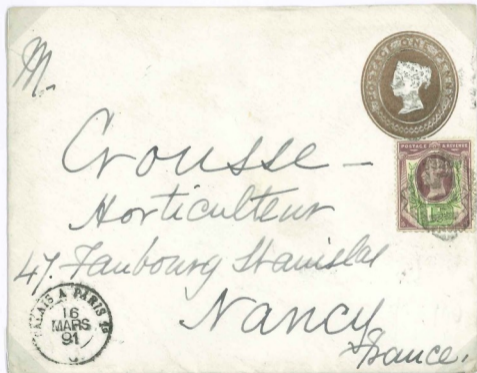 M.
POSTAGE ONE PENNY
POSTAGE & REVENUE
Crousse -
Horticulteur
47. Faubourg Stanislas
Nancy
France.
CALAIS A PARIS
16
MARS
91